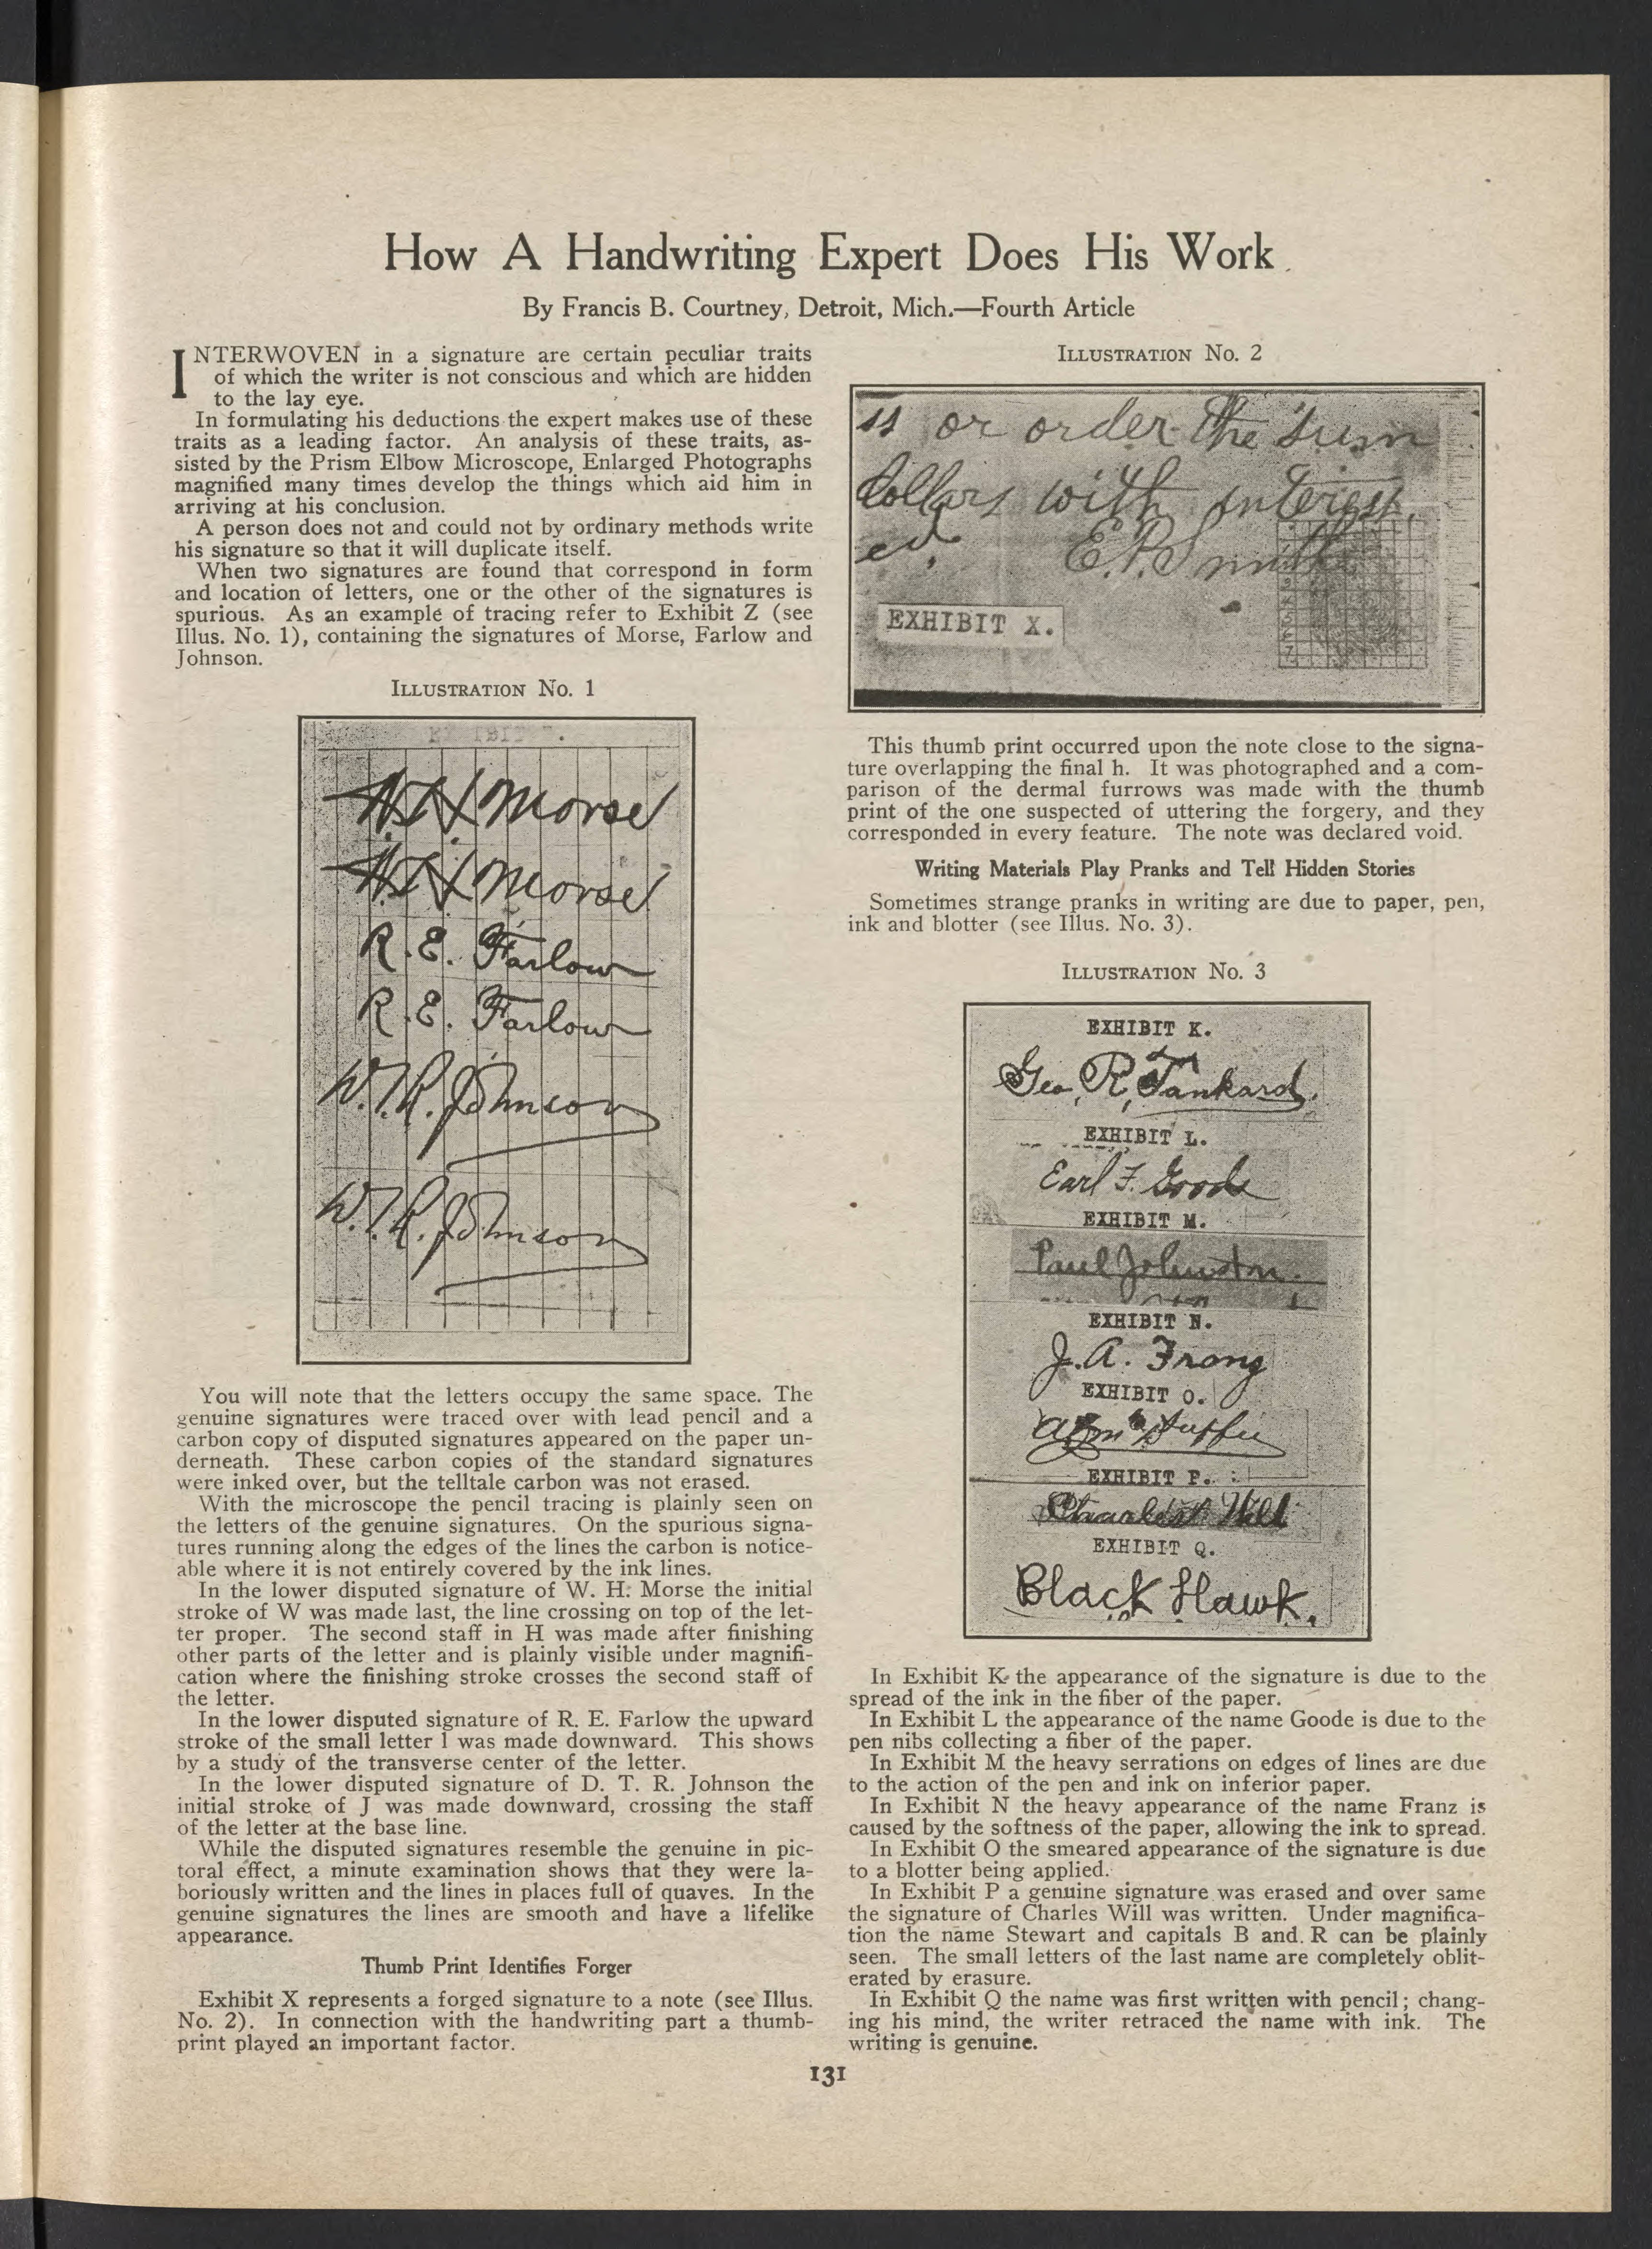 How A Handwriting Expert Does His Work
By Francis B. Courtney, Detroit, Mich.—Fourth Article
INTERWOVEN in a signature are certain peculiar traits
of which the writer is not conscious and which are hidden
to the lay eye.
In formulating his deductions the expert makes use of these
traits as a leading factor. An analysis of these traits, as-
sisted by the Prism Elbow Microscope, Enlarged Photographs
magnified many times develop the things which aid him in
arriving at his conclusion.
A person does not and could not by ordinary methods write
his signature so that it will duplicate itself.
When two signatures are found that correspond in form
and location of letters, one or the other of the signatures is
spurious. As an example of tracing refer to Exhibit Z (see
Illus. No. 1), containing the signatures of Morse, Farlow and
Johnson.
ILLUSTRATION No. 1
W. H. Morse
W. H. Morse
R. E. Farlow
R. E. Farlow
W. T. R. Johnson
W. T. R. Johnson
You will note that the letters occupy the same space. The
genuine signatures were traced over with lead pencil and a
carbon copy of disputed signatures appeared on the paper un-
derneath. These carbon copies of the standard signatures
were inked over, but the telltale carbon was not erased.
With the microscope the pencil tracing is plainly seen on
the letters of the genuine signatures. On the spurious signa-
tures running along the edges of the lines the carbon is notice-
able where it is not entirely covered by the ink lines.
In the lower disputed signature of W. H. Morse the initial
stroke of W was made last, the line crossing on top of the let-
ter proper. The second staff in H was made after finishing
other parts of the letter and is plainly visible under magnifi-
cation where the finishing stroke crosses the second staff of
the letter.
In the lower disputed signature of R. E. Farlow the upward
stroke of the small letter l was made downward. This shows
by a study of the transverse center of the letter.
In the lower disputed signature of D. T. R. Johnson the
initial stroke of J was made downward, crossing the staff
of the letter at the base line.
While the disputed signatures resemble the genuine in pic-
toral effect, a minute examination shows that they were la-
boriously written and the lines in places full of quaves. In the
genuine signatures the lines are smooth and have a lifelike
appearance.
Thumb Print Identifies Forger
Exhibit X represents a forged signature to a note (see Illus.
No. 2). In connection with the handwriting part a thumb-
print played an important factor.
ILLUSTRATION No. 2
ss or order the sum
dollars with interest.
ed. E.P. Smith
EXHIBIT X.
This thumb print occurred upon the note close to the signa-
ture overlapping the final h. It was photographed and a com-
parison of the dermal furrows was made with the thumb
print of the one suspected of uttering the forgery, and they
corresponded in every feature. The note was declared void.
Writing Materials Play Pranks and Tell Hidden Stories
Sometimes strange pranks in writing are due to paper, pen,
ink and blotter (see Illus. No. 3).
ILLUSTRATION No. 3
EXHIBIT K.
Geo. R. Tankard.
EXHIBIT L.
Earl F. Goode
EXHIBIT M.
Paul Johnston.
EXHIBIT N.
J. A. Franz
EXHIBIT O.
EXHIBIT P.
Charles Will
EXHIBIT Q.
Black Hawk.
In Exhibit K the appearance of the signature is due to the
spread of the ink in the fiber of the paper.
In Exhibit L the appearance of the name Goode is due to the
pen nibs collecting a fiber of the paper.
In Exhibit M the heavy serrations on edges of lines are due
to the action of the pen and ink on inferior paper.
In Exhibit N the heavy appearance of the name Franz is
caused by the softness of the paper, allowing the ink to spread.
In Exhibit O the smeared appearance of the signature is due
to a blotter being applied.
In Exhibit P a genuine signature was erased and over same
the signature of Charles Will was written. Under magnifica-
tion the name Stewart and capitals B and R can be plainly
seen. The small letters of the last name are completely oblit-
erated by erasure.
In Exhibit Q the name was first written with pencil; chang-
ing his mind, the writer retraced the name with ink. The
writing is genuine.
131